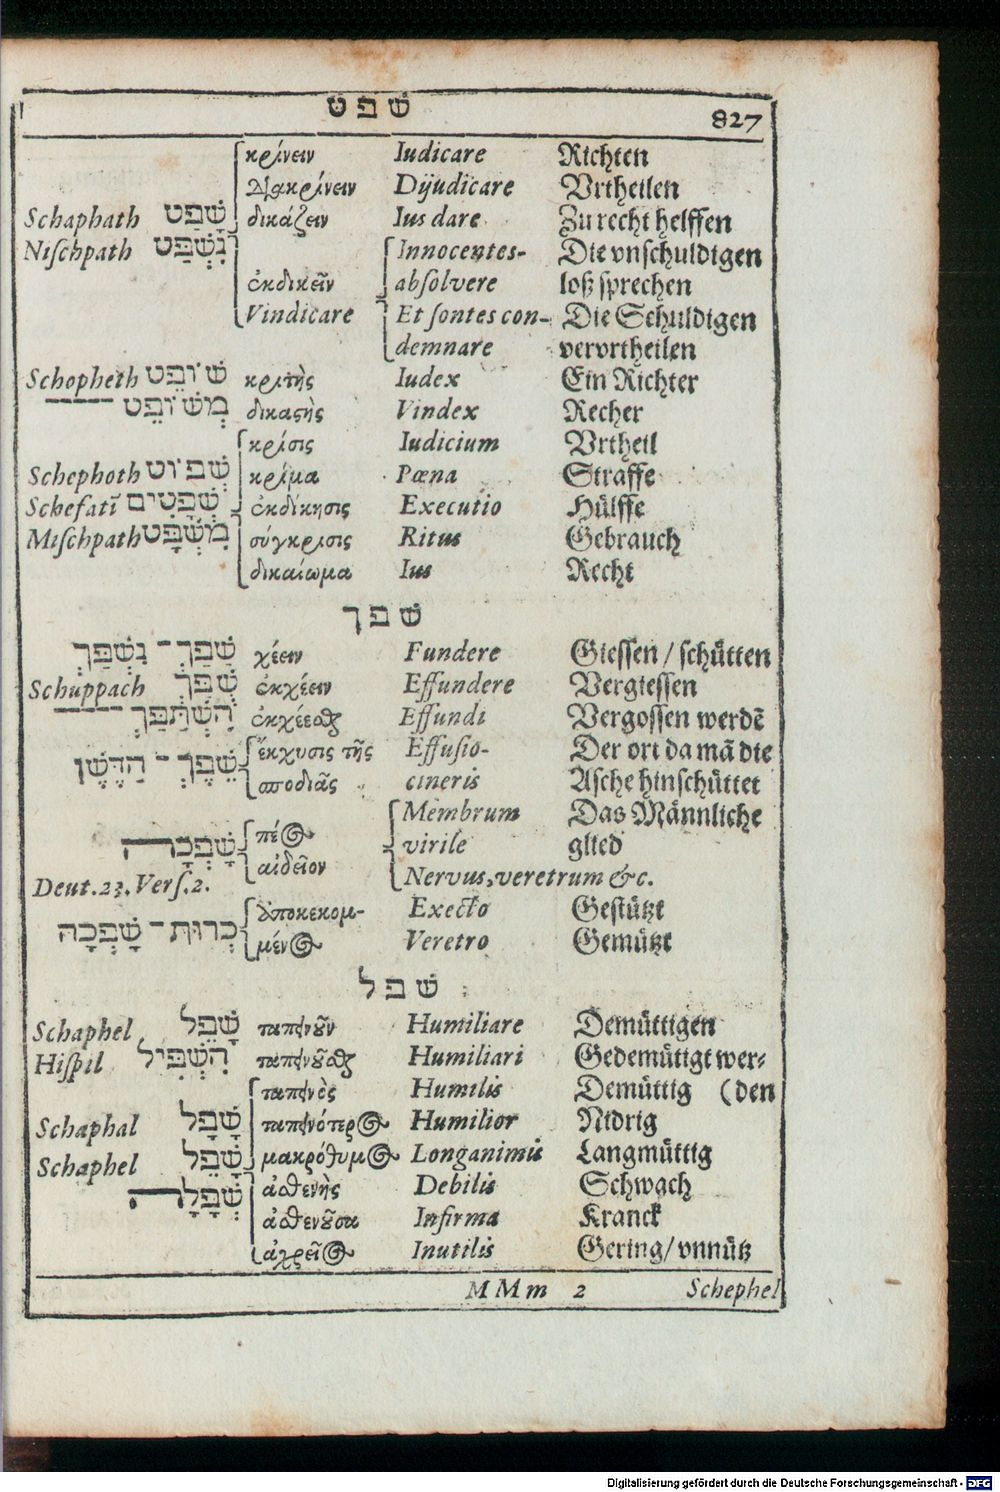 שפט 827
κρίνειν Iudicare Richten
Διακρίνειν Dijudicare Vrtheilen
Schaphath שָׁפַט δικάζειν Ius dare Zu recht helffen
Nischpath נִשְׁפַּט Innocentes- Die vnschuldigen
ἐκδικεῖν absolvere loß sprechen
Vindicare Et sontes con- Die Schuldigen
demnare vervrtheilen
Schopheth שׁוֹפֵט κριτὴς Iudex Ein Richter
מְשׁוֹפֵט δικαςὴς Vindex Recher
κρίσις Iudicium Vrtheil
Schephoth שְׁפוֹט κρίμα Pœna Straffe
Schefatĩ שְׁפָטִים ἐκδίκησις Executio Hülffe
Mischpath מִשְׁפָּט σύγκρισις Ritus Gebrauch
δικαίωμα Ius Recht
שפך
שָׁפַךְ - נִשְׁפַּךְ χέειν Fundere Giessen / schütten
Schuppach שֻׁפַּךְ ἐκχέειν Effundere Vergiessen
הִשְׁתַּפֵּךְ ἐκχέεσθαι Effundi Vergossen werdẽ
שֶׁפֶךְ - הַדֶּשֶׁן ἔκχυσις τῆς Effusio- Der ort da mã die
σποδιᾶς cineris Asche hinschüttet
Membrum Das Männliche
שָׁפְכָה πέος virile glied
αἰδεῖον Nervus, veretrum &c.
Deut. 23. Vers. 2.
כְּרוּת - שָׁפְכָה ἀποκεκομ- Execto Gestützt
μένος Veretro Gemützt
שפל
Schaphel שָׁפֵל ταπεινοῦν Humiliare Demüttigen
Hispil הִשְׁפִּיל ταπεινοῦσθαι Humiliari Gedemütigt wer-
ταπεινὸς Humilis Demüttig (den
Schaphal שָׁפָל ταπεινότερος Humilior Nidrig
Schaphel שָׁפֵל μακρόθυμος Longanimis Langmüttig
שְׁפָלָה ἀσθενὴς Debilis Schwach
ἀσθενοῦσα Infirma Kranck
ἀχρεῖος Inutilis Gering / vnnütz
MMm 2 Schephel
Digitalisierung gefördert durch die Deutsche Forschungsgemeinschaft - DFG